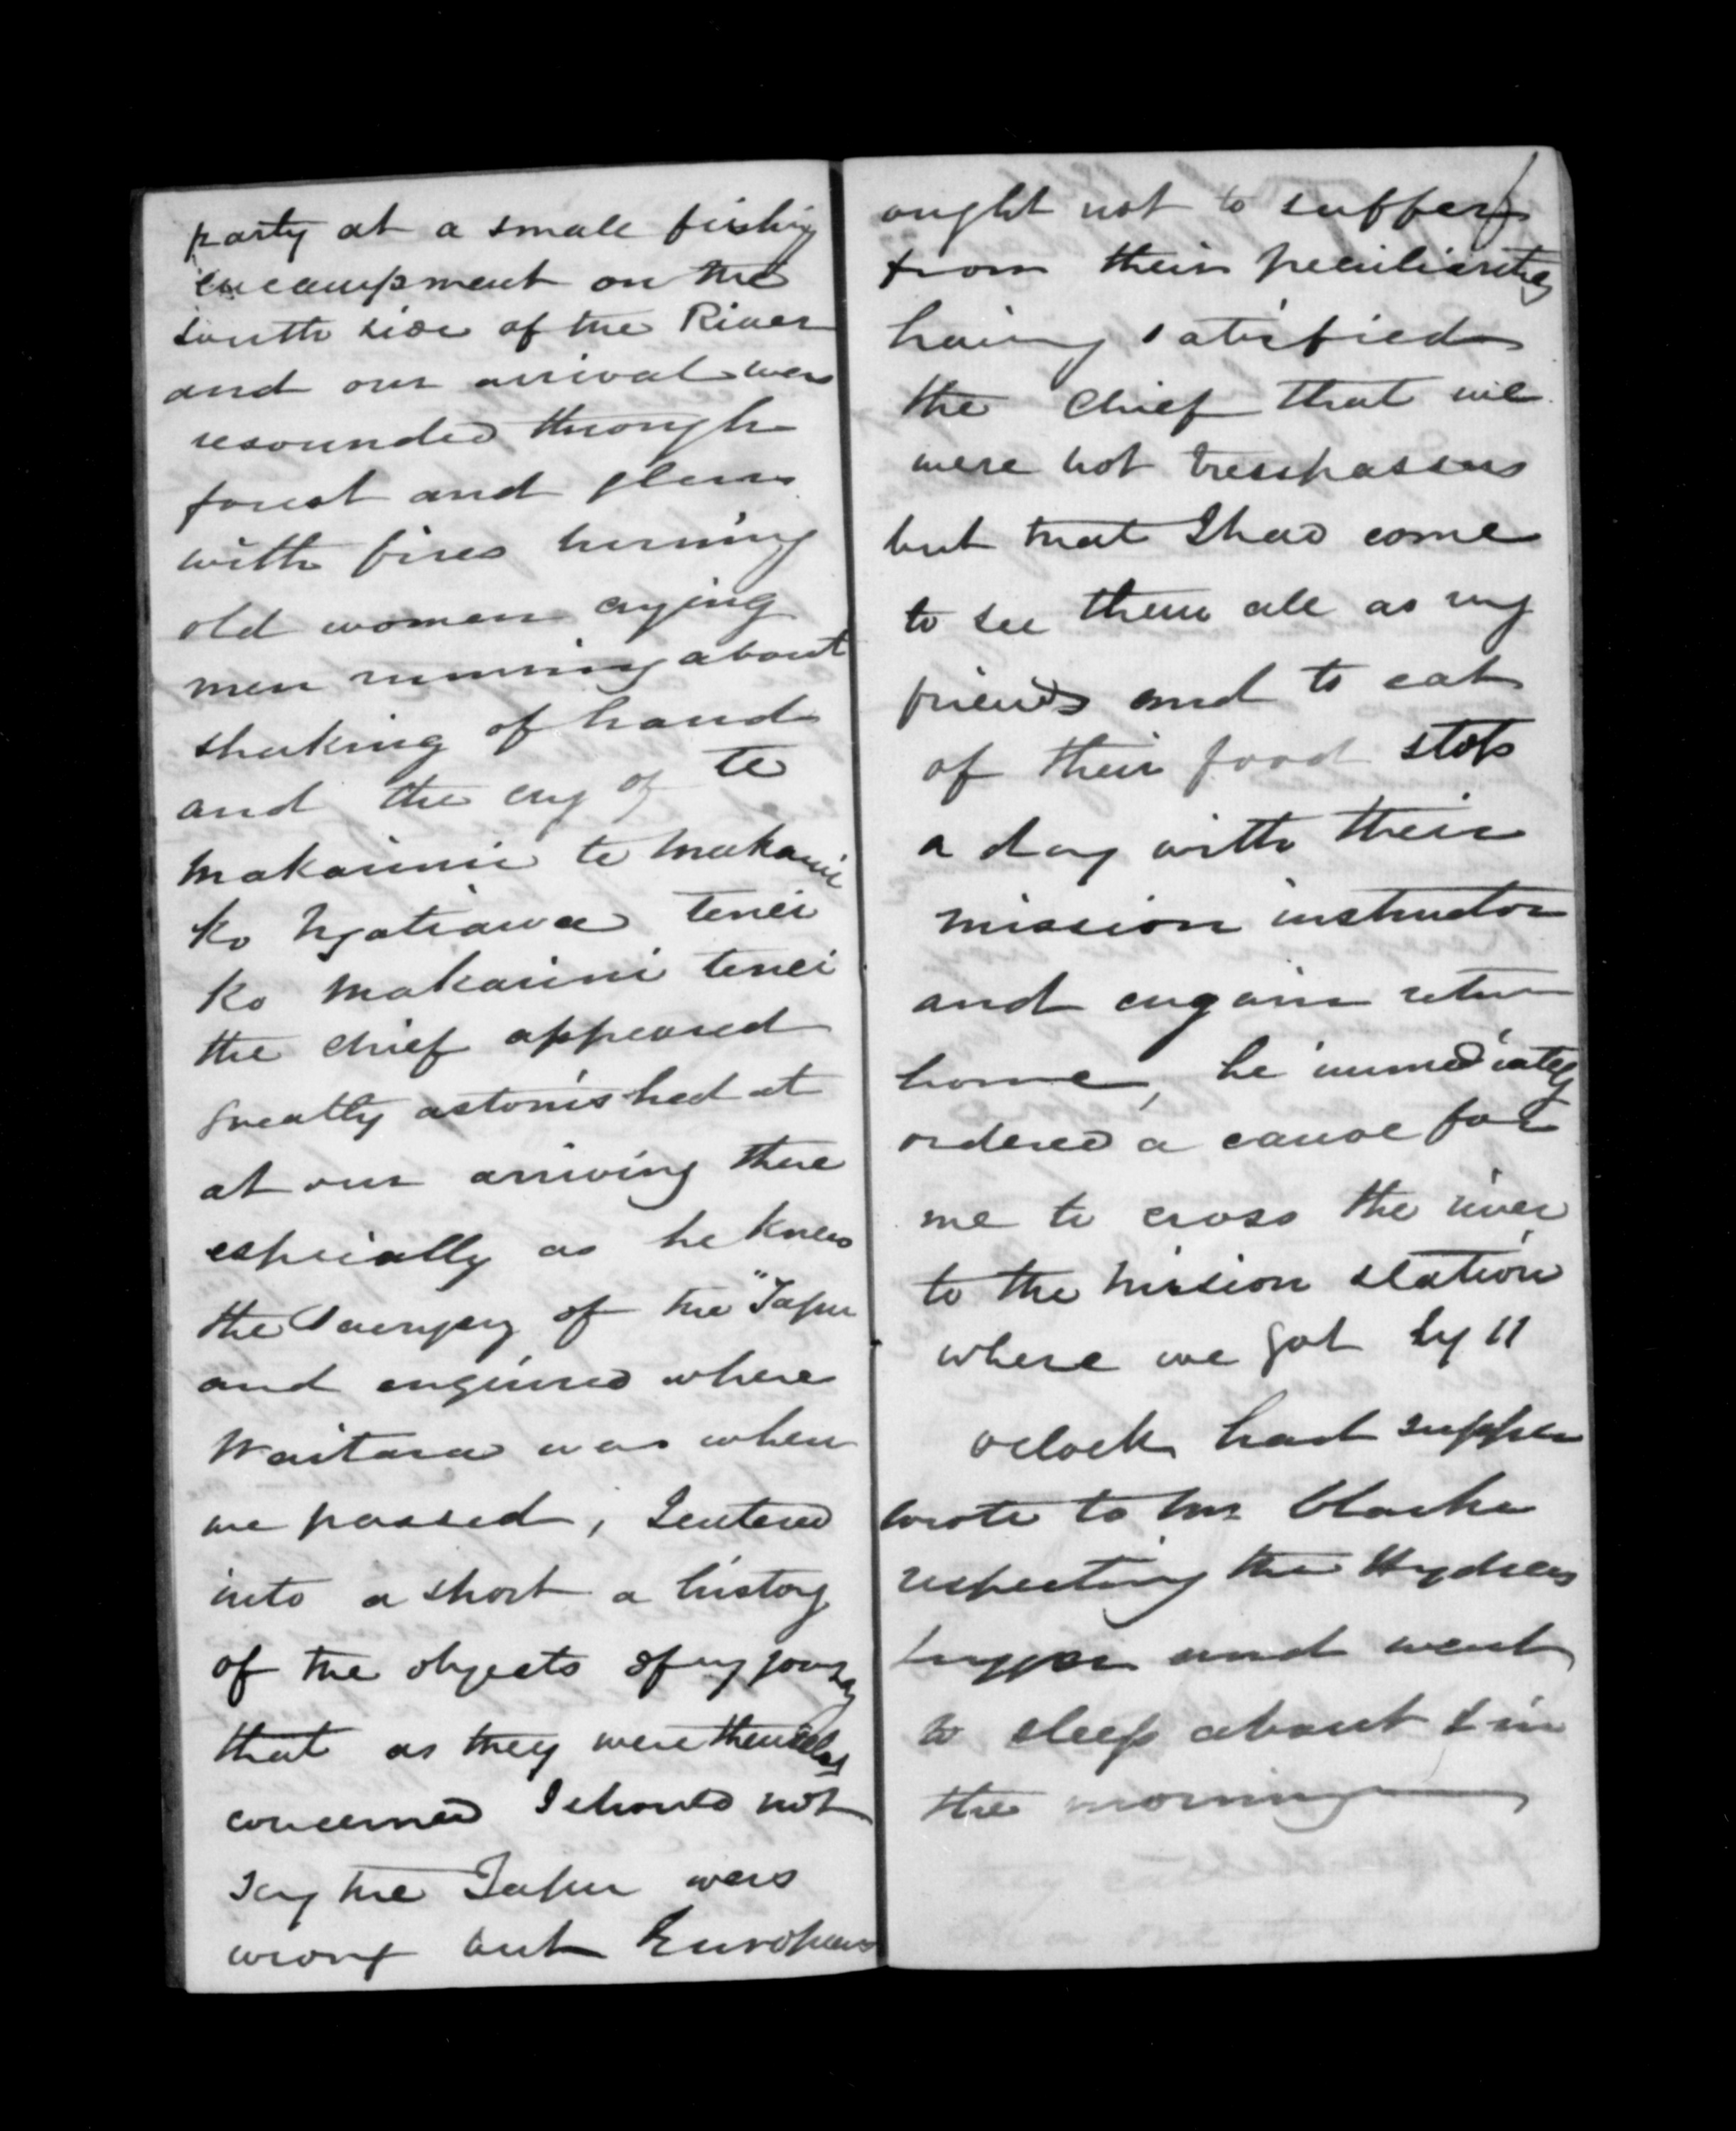 party at a small fishing
encampment on the
south side of the River
and our arrival was
resounded through
forest and glens
with fires burning
old women crying
men running about
shaking of hands
and the cry of te
makarini te makarini
ko Ngatiawa tenei
ko makarini tenei
the chief appeared
greatly astonished at
at our arriving there
especially as he knew
the of the "Tapu
and enquired where
Waitara was when
we passed, I entered
into a short a history
of the objects of my journey
that as they were themselves
concerned I should not
say the Tapu was
wrong but Europeans
ought not to suffer
from their peculiarities
having satisfied
the chief that we
were not trespassers
but that I had come
to see them all as my
friends and to eat
of their food stop
a day with their
mission instructor
and again return
home, he immediately
ordered a canoe for
me to cross the river
to the mission station
where we got by 11
oclock had supper
wrote to Mr
respecting the
and went
to sleep about in
the morning